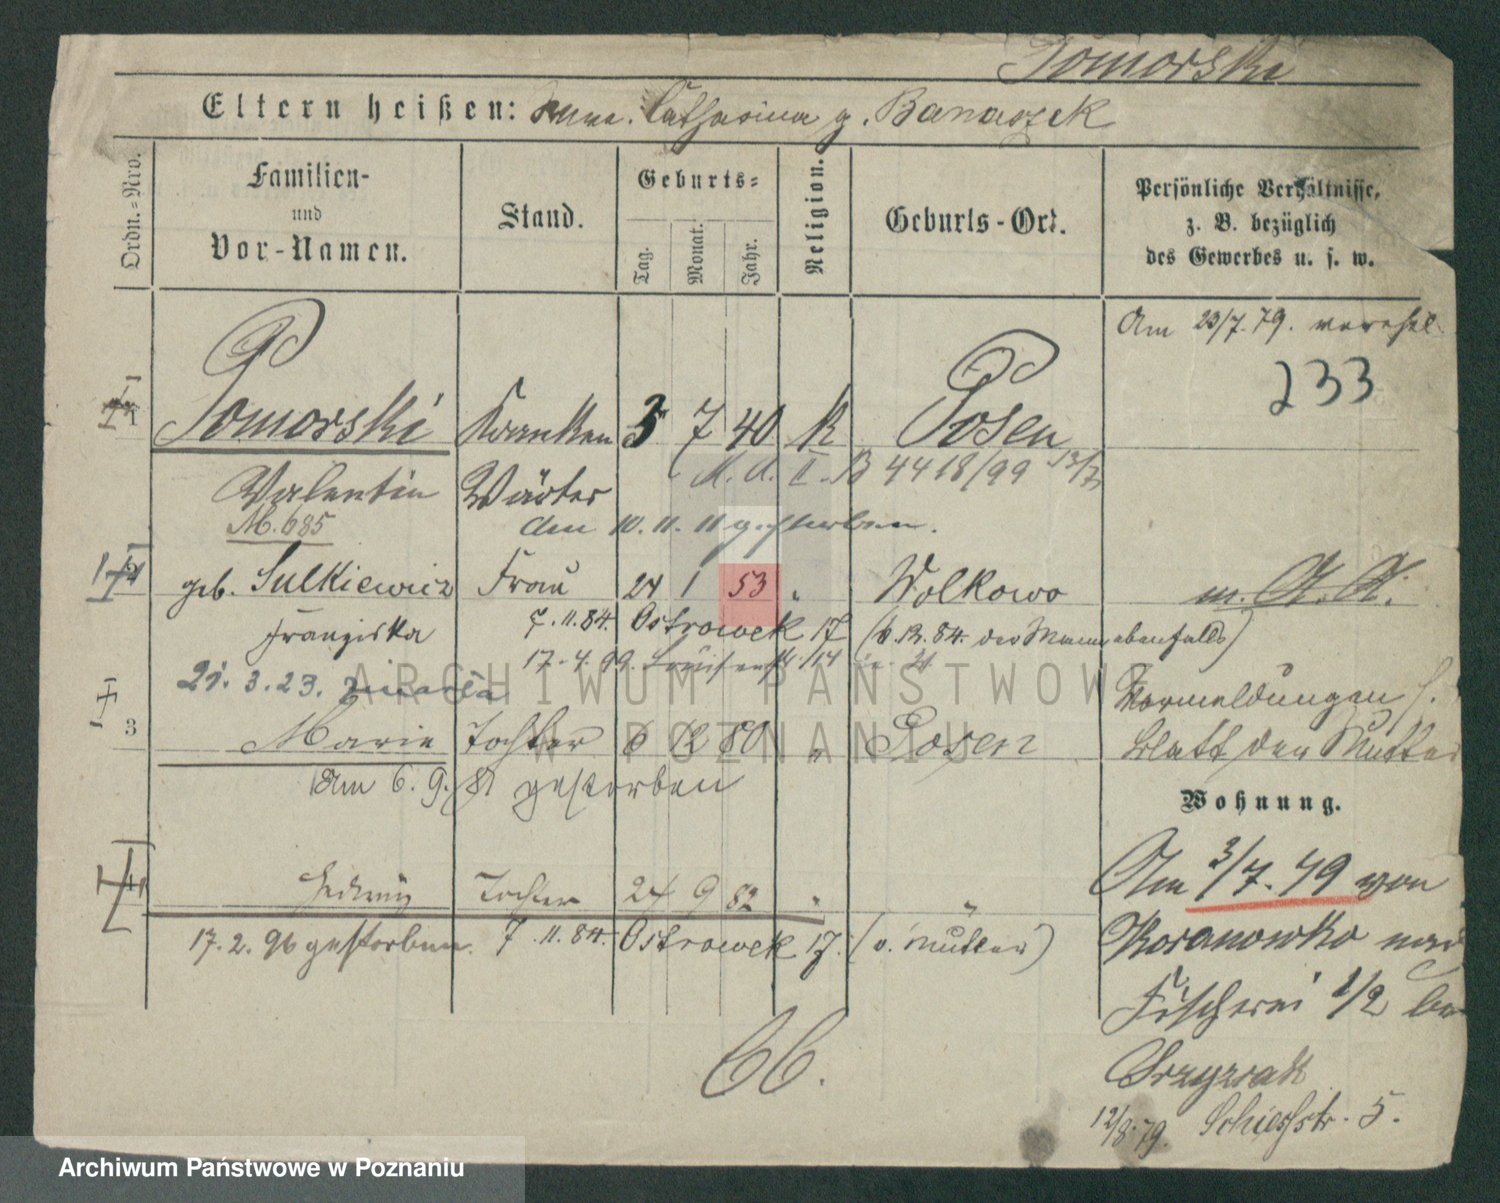 Pomorski
Eltern heißen: Catharina g. Banaszek
Ordn.=Nro.
Familien-
und
Vor-Namen.
Stand.
Geburts=
Tag.
Monat.
Jahr.
Religion.
Geburts-Ort.
Persönliche Verhältnisse,
z. B. bezüglich
des Gewerbes u. s. w.
Am 23/7. 79. verehel.
233
1
Pomorski Kranken 7 40 K Posen
M. A. II. B 4418/99 13/7
Valentin Wärter
M. 685
den 10. 11. 11 gestorben.
2
geb. Sulkiewicz Frau 24 1 53 " Wolkowo m. A. A.
Franziska 7. 11. 84. Ostrowek 17 (6. 12. 84. der Mann ebenfalls)
17. 4. 99. 14
21. 3. 23.
ARCHIWUM PAŃSTWOWE
W POZNANIU
Vormeldungen s.
3
Marie Tochter 6 12 80 " Posen Blatt der Mutter
Am 6. 9. 81 gestorben
Wohnung.
4
Hedwig Tochter 24 9 82 " "
17. 2. 96 gestorben. 7. 11. 84. Ostrowek 17. (v. Mutter)
Am 3/7. 79 von
Koranowko nach
Fischerei 1/2 bei
12/8. 79. Schießstr. 5.
Archiwum Państwowe w Poznaniu